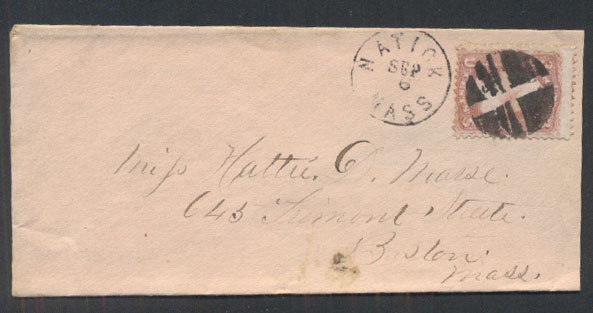 NATICK
SEP
6
MASS
Miss Hattie C. Morse.
645 Tremont Street.
Boston.
Mass.